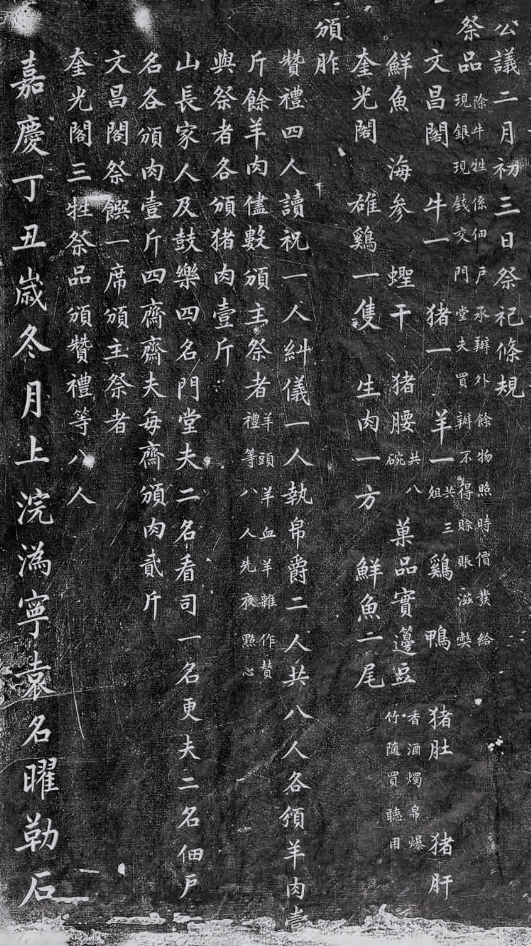 公議二月初三日祭祀條規
祭品除牛牲係佃戶承辦外餘物照時價發給
現銀現錢交門堂夫買辦不得賒賬滋獘
文昌閣 牛一 猪一 羊一共三俎 鷄 鴨 猪肚 猪肝
鮮魚 海參 蟶干 猪腰共八碗 菓品實籩豆香酒燭帛爆竹隨買聽用
奎光閣 雄鷄一隻 生肉一方 鮮魚二尾
頒胙
贊禮四人讀祝一人糾儀一人執帛爵二人共八人各頒羊肉壹
斤餘羊肉儘數頒主祭者羊頭羊血羊雜作贊禮等八人先夜點心
與祭者各頒猪肉壹斤
山長家人及鼓樂四名門堂夫二名看司一名更夫二名佃戶一
名各頒肉壹斤四齋齋夫每齋頒肉貳斤
文昌閣祭饌一席頒主祭者
奎光閣三牲祭品頒贊禮等八人
嘉慶丁丑嵗冬月上浣溈寧袁名曜勒石